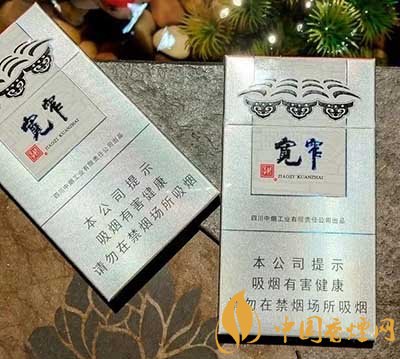 宽窄
JIAOZI KUANZHAI
四川中烟工业有限责任公司出品
本公司提示
吸烟有害健康
请勿在禁烟场所吸烟
宽窄
JIAOZI KUANZHAI
四川中烟工业有限责任公司出品
本公司提示
吸烟有害健康
请勿在禁烟场所吸烟
中国香烟网